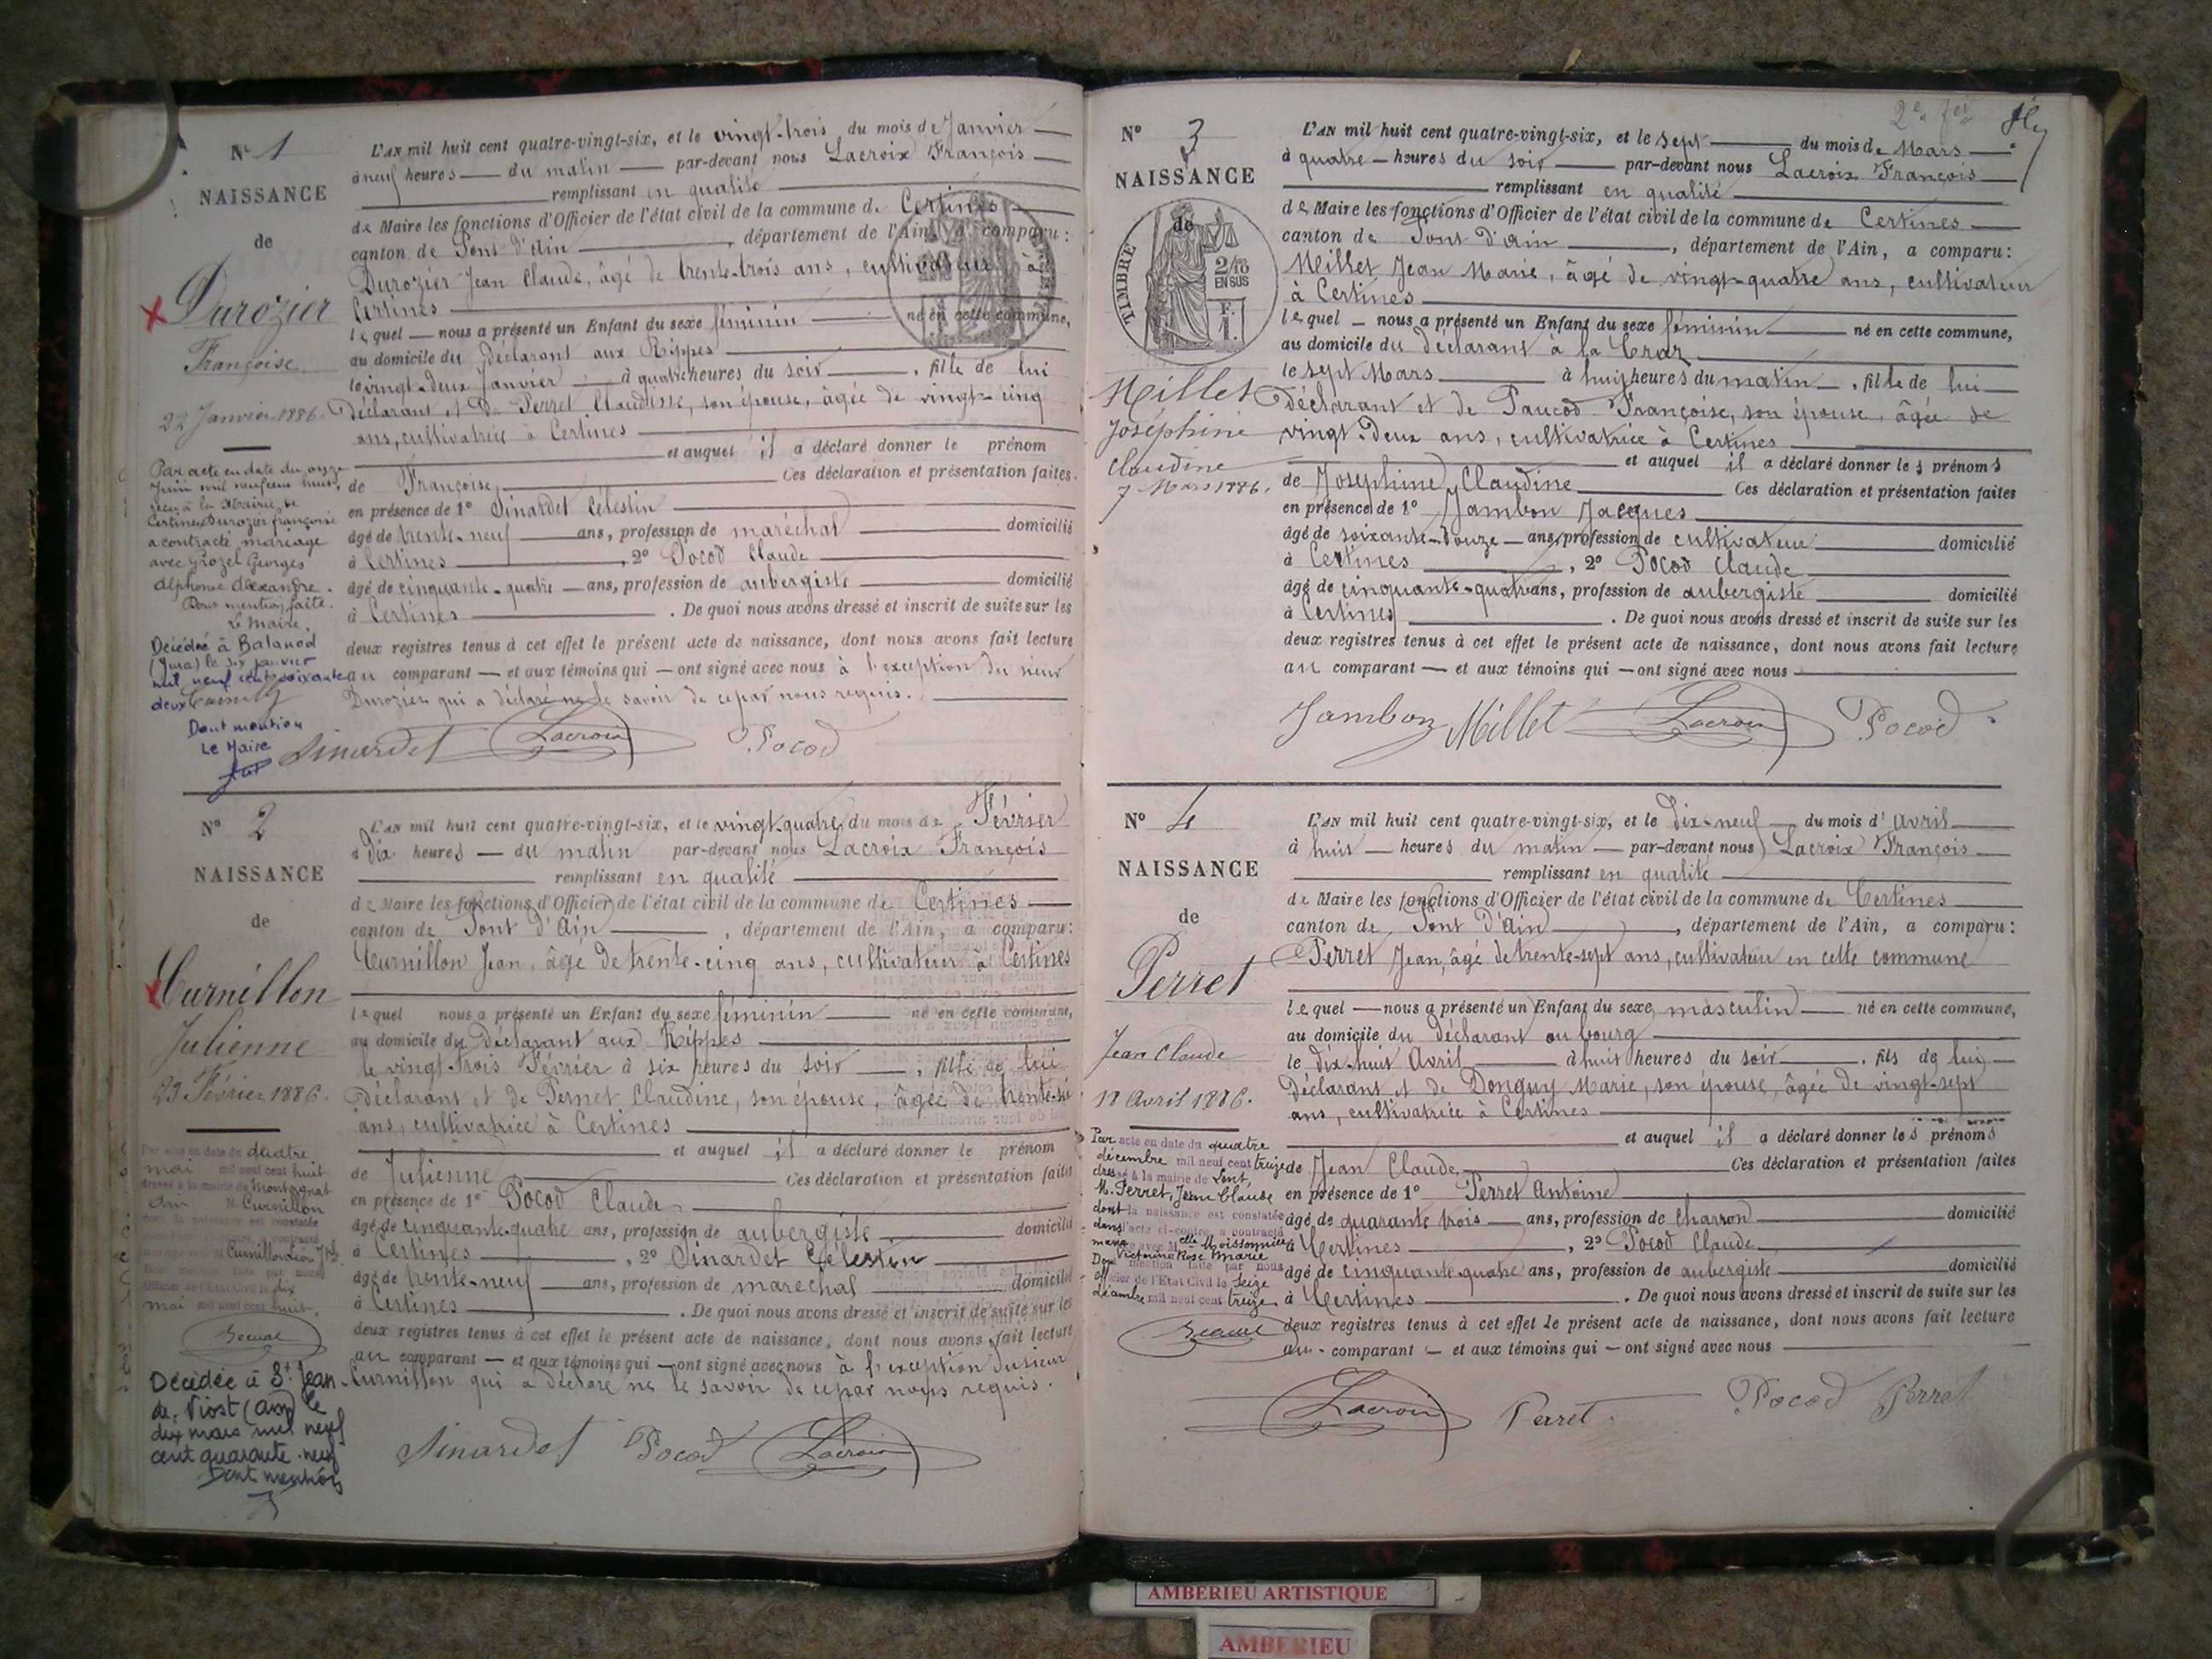 N° 1
NAISSANCE
de
Durozier
Françoise
22 Janvier 1886
Par acte en date du onze
Juin mil neuf cent huit,
reçu à la Mairie de
Certines Durozier françoise
a contracté mariage
avec Grozel Georges
Alphonse Alexandre.
Dont mention faite.
Le Maire,
Décédée à Balanod
(Jura) le six janvier
mil neuf cent soixante
deux
Dont mention
Le Maire
L'AN mil huit cent quatre-vingt-six, et le vingt-trois du mois de Janvier
à neuf heures du matin par-devant nous Lacroix François
remplissant en qualité
de Maire les fonctions d'Officier de l'état civil de la commune de Certines
canton de Pont d'Ain, département de l'Ain, a comparu:
Durozier Jean Claude, âgé de trente-trois ans, cultivateur à
Certines
lequel nous a présenté un Enfant du sexe féminin né en cette commune,
au domicile du déclarant aux Rippes
le vingt-deux Janvier à quatre heures du soir, fille de lui
déclarant et de Perret Claudine, son épouse, âgée de vingt-cinq
ans, cultivatrice à Certines
et auquel il a déclaré donner le prénom
de Françoise Ces déclaration et présentation faites
en présence de 1° Sinardet Célestin
âgé de trente-neuf ans, profession de maréchal domicilié
à Certines, 2° Pocod Claude
âgé de cinquante-quatre ans, profession de aubergiste domicilié
à Certines. De quoi nous avons dressé et inscrit de suite sur les
deux registres tenus à cet effet le présent acte de naissance, dont nous avons fait lecture
au comparant et aux témoins qui ont signé avec nous à l'exception du sieur
Durozier qui a déclaré ne le savoir de ce par nous requis.
Sinardet Lacroix Pocod
N° 2
NAISSANCE
de
Curnillon
Julienne
23 Février 1886.
Par acte en date du quatre
mai mil neuf cent huit
dressé à la mairie de Montagnat
Ain M. Curnillon
dont la naissance est constatée
Curnillon Léon Jph
Officier de l'Etat Civil le dix
mai mil neuf cent huit.
Décédée à St Jean
de Niost (Ain) le
dix mars mil neuf
cent quarante-neuf
Dont mention
L'AN mil huit cent quatre-vingt-six, et le vingt-quatre du mois de Février
à dix heures du matin par-devant nous Lacroix François
remplissant en qualité
de Maire les fonctions d'Officier de l'état civil de la commune de Certines
canton de Pont d'Ain, département de l'Ain, a comparu:
Curnillon Jean, âgé de trente-cinq ans, cultivateur à Certines
lequel nous a présenté un Enfant du sexe féminin né en cette commune,
au domicile du déclarant aux Rippes
le vingt-trois Février à six heures du soir, fille de lui
déclarant et de Pernet Claudine, son épouse, âgée de trente-six
ans, cultivatrice à Certines
et auquel il a déclaré donner le prénom
de Julienne Ces déclaration et présentation faites
en présence de 1° Pocod Claude
âgé de cinquante-quatre ans, profession de aubergiste domicilié
à Certines, 2° Sinardet Célestin
âgé de trente-neuf ans, profession de maréchal domicilié
à Certines. De quoi nous avons dressé et inscrit de suite sur les
deux registres tenus à cet effet le présent acte de naissance, dont nous avons fait lecture
au comparant et aux témoins qui ont signé avec nous à l'exception du sieur
Curnillon qui a déclaré ne le savoir de ce par nous requis.
Sinardet Pocod Lacroix
N° 3
NAISSANCE
de
TIMBRE
2/10
EN SUS
F.
1.
Millet
Joséphine
Claudine
7 Mars 1886.
L'AN mil huit cent quatre-vingt-six, et le sept du mois de Mars
à quatre heures du soir par-devant nous Lacroix François
remplissant en qualité
de Maire les fonctions d'Officier de l'état civil de la commune de Certines
canton de Pont d'Ain, département de l'Ain, a comparu:
Millet Jean Marie, âgé de vingt-quatre ans, cultivateur
à Certines
lequel nous a présenté un Enfant du sexe féminin né en cette commune,
au domicile du déclarant à la Craz
le sept Mars à huit heures du matin, fille de lui
déclarant et de Paucod Françoise, son épouse, âgée de
vingt-deux ans, cultivatrice à Certines
et auquel il a déclaré donner les prénoms
de Josephine, Claudine Ces déclaration et présentation faites
en présence de 1° Jambon Jacques
âgé de soixante-douze ans, profession de cultivateur domicilié
à Certines, 2° Pocod Claude
âgé de cinquante-quatre ans, profession de aubergiste domicilié
à Certines. De quoi nous avons dressé et inscrit de suite sur les
deux registres tenus à cet effet le présent acte de naissance, dont nous avons fait lecture
au comparant et aux témoins qui ont signé avec nous
Jambon Millet Lacroix Pocod
N° 4
NAISSANCE
de
Perret
Jean Claude
18 Avril 1886.
Par acte en date du quatre
décembre mil neuf cent treize
dressé à la mairie de Lent,
M. Perret, Jean Claude
dont la naissance est constatée
dans l'acte ci-contre a contracté
mariage avec Melle Moissonnier
Victorine Rose Marie
Dont mention faite par nous
Officier de l'Etat Civil le seize
décembre mil neuf cent treize
L'AN mil huit cent quatre-vingt-six, et le dix-neuf du mois d'avril
à huit heures du matin par-devant nous Lacroix François
remplissant en qualité
de Maire les fonctions d'Officier de l'état civil de la commune de Certines
canton de Pont d'Ain, département de l'Ain, a comparu:
Perret Jean, âgé de trente-sept ans, cultivateur en cette commune
lequel nous a présenté un Enfant du sexe masculin né en cette commune,
au domicile du déclarant au bourg
le dix-huit Avril à huit heures du soir, fils de lui
déclarant et de Donguy Marie, son épouse, âgée de vingt-sept
ans, cultivatrice à Certines
et auquel il a déclaré donner les prénoms
de Jean Claude Ces déclaration et présentation faites
en présence de 1° Perret Antoine
âgé de quarante trois ans, profession de charron domicilié
à Certines, 2° Pocod Claude
âgé de cinquante-quatre ans, profession de aubergiste domicilié
à Certines. De quoi nous avons dressé et inscrit de suite sur les
deux registres tenus à cet effet le présent acte de naissance, dont nous avons fait lecture
au comparant et aux témoins qui ont signé avec nous
Lacroix Perret Pocod Perret
AMBERIEU ARTISTIQUE
AMBERIEU